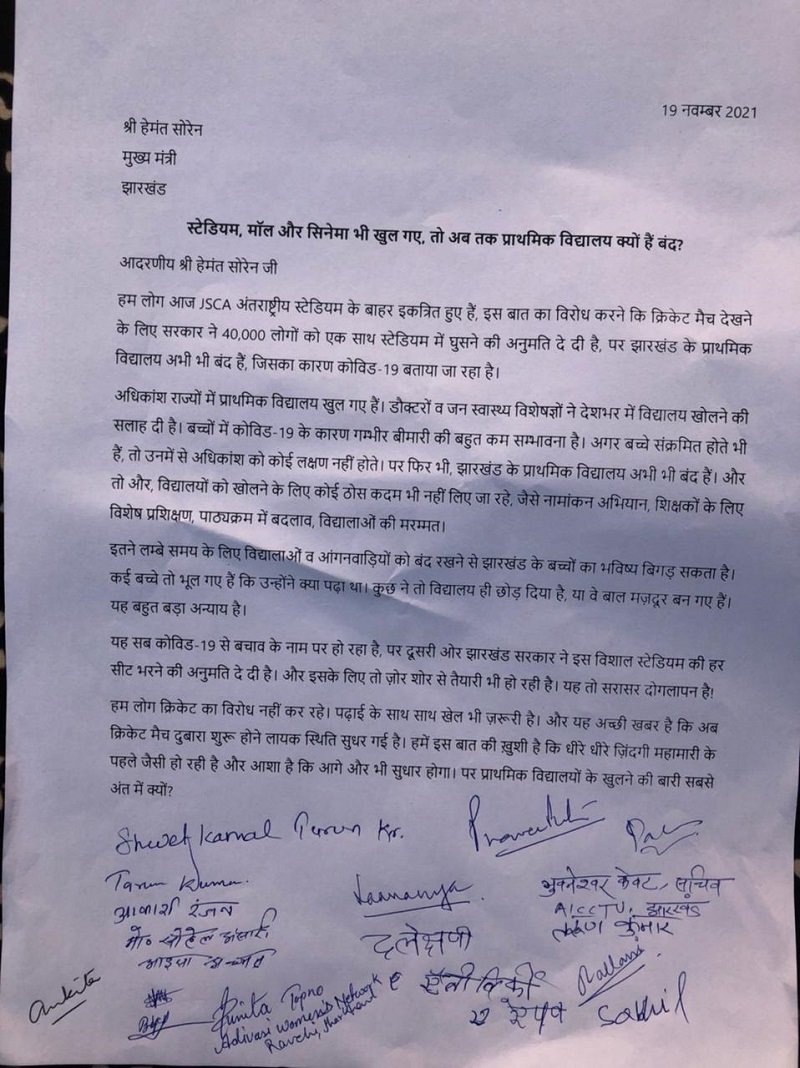 19 नवम्बर 2021
श्री हेमंत सोरेन
मुख्य मंत्री
झारखंड
स्टेडियम, मॉल और सिनेमा भी खुल गए, तो अब तक प्राथमिक विद्यालय क्यों हैं बंद?
आदरणीय श्री हेमंत सोरेन जी
हम लोग आज JSCA अंतराष्ट्रीय स्टेडियम के बाहर इकत्रित हुए हैं, इस बात का विरोध करने कि क्रिकेट मैच देखने
के लिए सरकार ने 40,000 लोगों को एक साथ स्टेडियम में घुसने की अनुमति दे दी है, पर झारखंड के प्राथमिक
विद्यालय अभी भी बंद हैं, जिसका कारण कोविड-19 बताया जा रहा है।
अधिकांश राज्यों में प्राथमिक विद्यालय खुल गए हैं। डौक्टरों व जन स्वास्थ्य विशेषज्ञों ने देशभर में विद्यालय खोलने की
सलाह दी है। बच्चों में कोविड-19 के कारण गम्भीर बीमारी की बहुत कम सम्भावना है। अगर बच्चे संक्रमित होते भी
हैं, तो उनमें से अधिकांश को कोई लक्षण नहीं होते। पर फिर भी, झारखंड के प्राथमिक विद्यालय अभी भी बंद हैं। और
तो और, विद्यालयों को खोलने के लिए कोई ठोस कदम भी नहीं लिए जा रहे, जैसे नामांकन अभियान, शिक्षकों के लिए
विशेष प्रशिक्षण, पाठ्यक्रम में बदलाव, विद्यालाओं की मरम्मत।
इतने लम्बे समय के लिए विद्यालाओं व आंगनवाड़ियों को बंद रखने से झारखंड के बच्चों का भविष्य बिगड़ सकता है।
कई बच्चे तो भूल गए हैं कि उन्होंने क्या पढ़ा था। कुछ ने तो विद्यालय ही छोड़ दिया है, या वे बाल मज़दूर बन गए हैं।
यह बहुत बड़ा अन्याय है।
यह सब कोविड-19 से बचाव के नाम पर हो रहा है, पर दूसरी ओर झारखंड सरकार ने इस विशाल स्टेडियम की हर
सीट भरने की अनुमति दे दी है। और इसके लिए तो ज़ोर शोर से तैयारी भी हो रही है। यह तो सरासर दोगलापन है!
हम लोग क्रिकेट का विरोध नहीं कर रहे। पढ़ाई के साथ साथ खेल भी ज़रूरी है। और यह अच्छी खबर है कि अब
क्रिकेट मैच दुबारा शुरू होने लायक स्थिति सुधर गई है। हमें इस बात की ख़ुशी है कि धीरे धीरे ज़िंदगी महामारी के
पहले जैसी हो रही है और आशा है कि आगे और भी सुधार होगा। पर प्राथमिक विद्यालयों के खुलने की बारी सबसे
अंत में क्यों?
Shwet Kamal
Tarun Kumar
आकाश रंजन
मो०
भुवनेश्वर केवट, सचिव
AICCTU, झारखंड
कुमार
Ankita
Sunita Topno
Adivasi Women's Network
Ranchi, Jharkhand
Sakhil